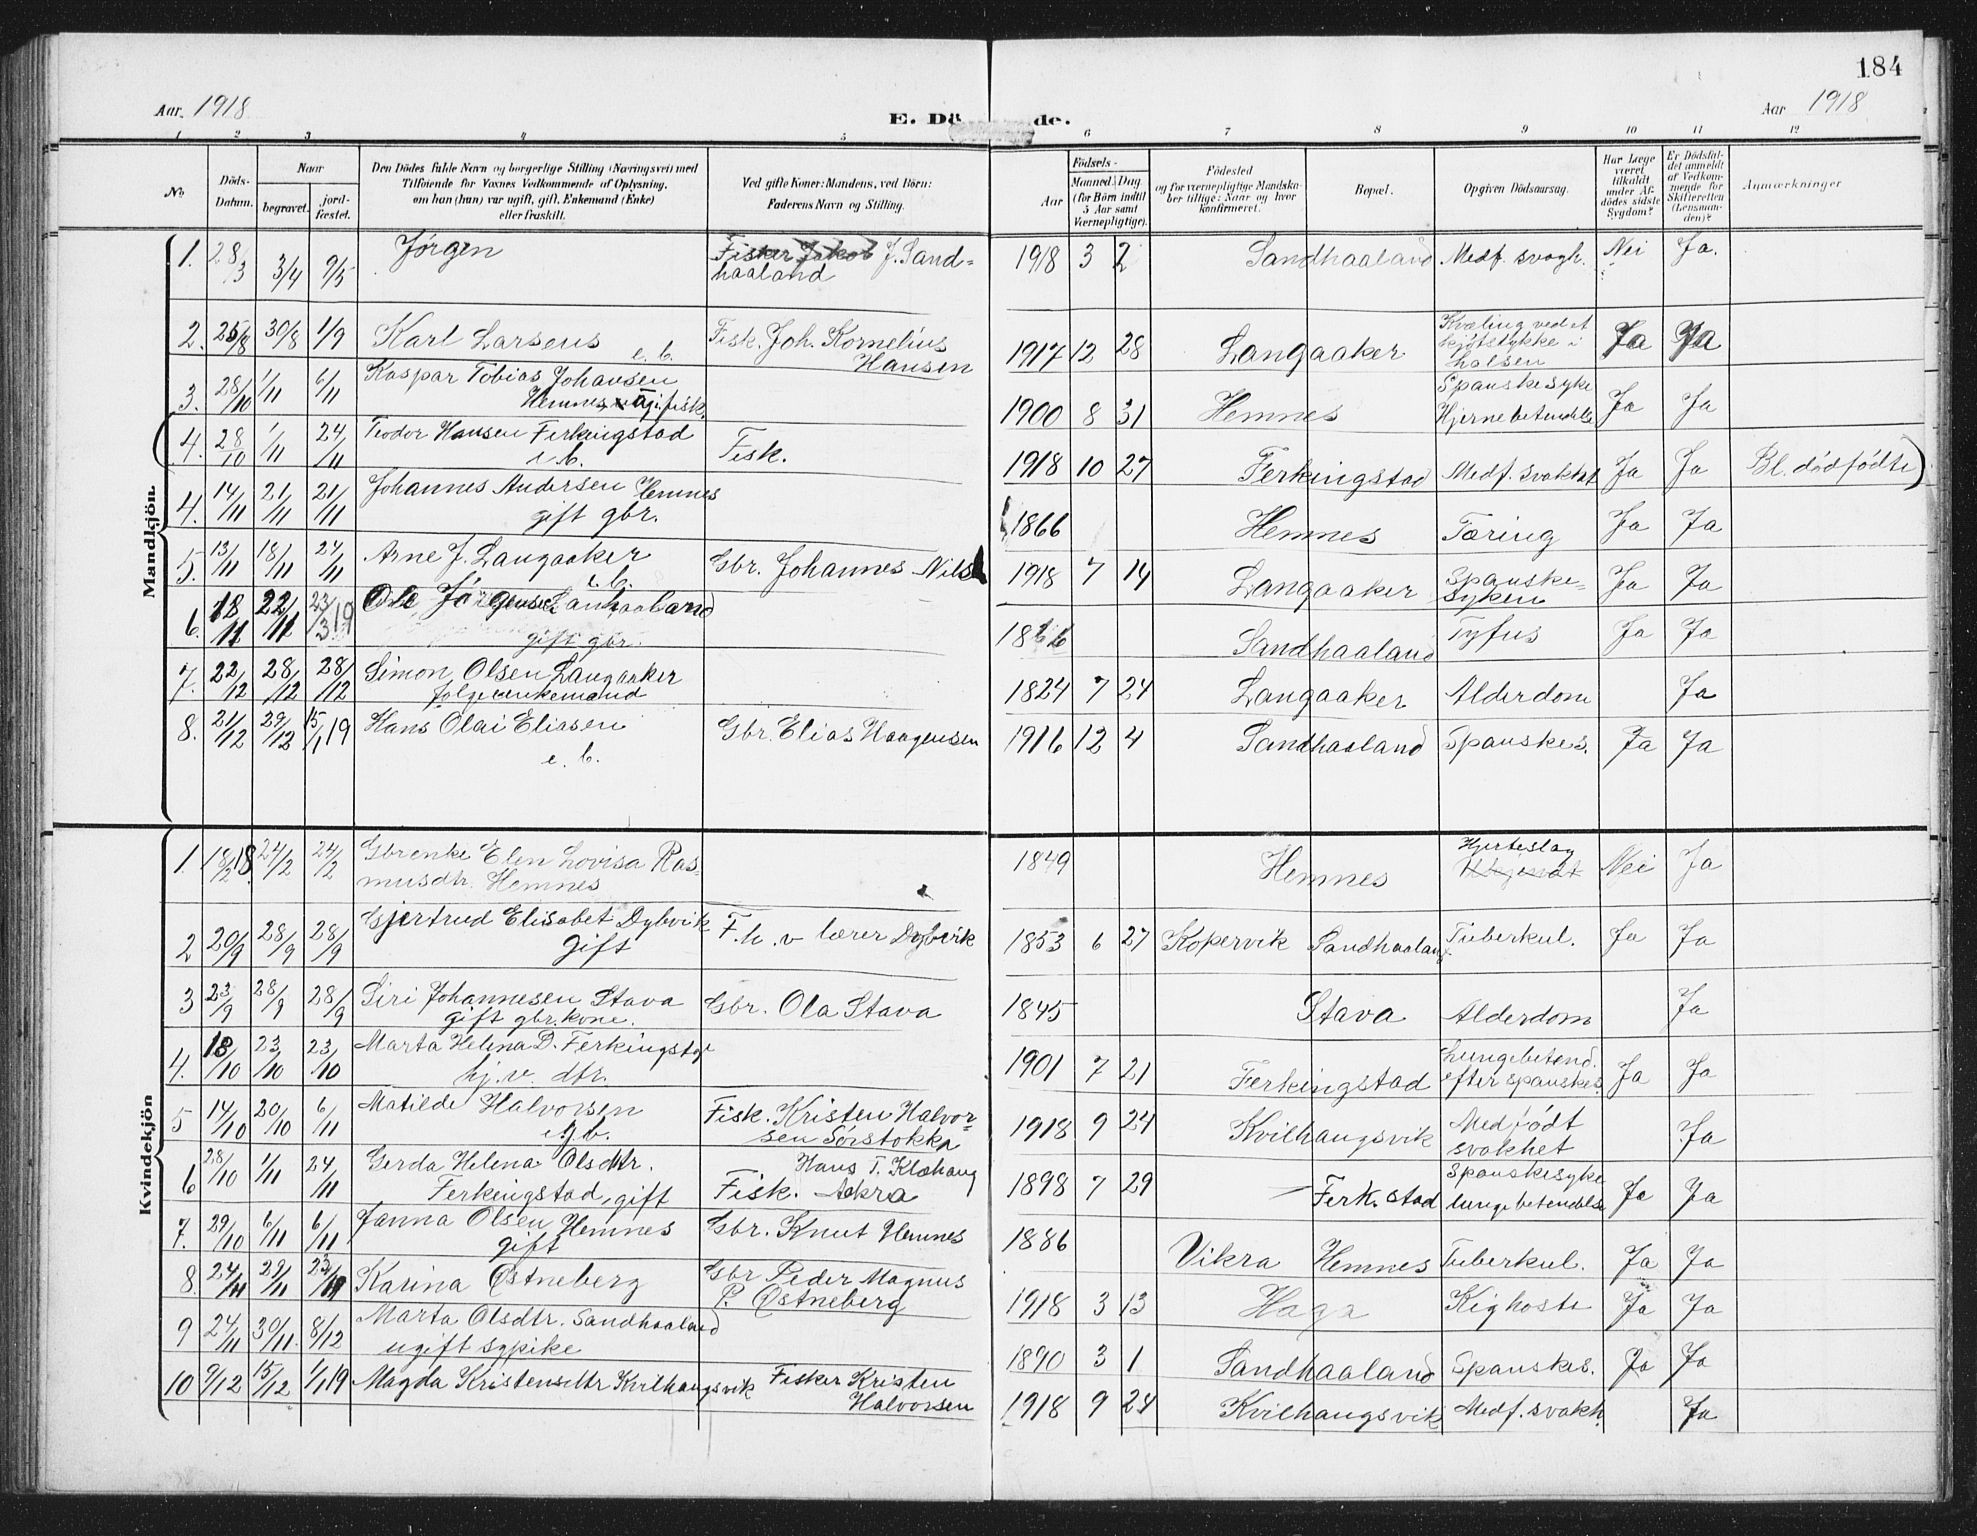 184
Aar 1918
E. Dö de.
Aar 1918
1 2 3 4 5 6 7 8 9 10 11 12
No
Döds-Datum.
Naar
begravet.
jord-fæstet.
Den Dödes fulde Navn og borgerlige Stilling (Næringsvei) med
Tilföiende for Voxnes Vedkommende af Oplysning,
om han (hun) var ugift, gift, Enkemand (Enke)
eller fraskilt.
Ved gifte Koner: Mandens, ved Börn:
Faderens Navn og Stilling.
Födsels-
Aar
Maaned. Dag.
(for Börn indtil
5 Aar samt
Værnepligtige).
Födested
og for værnepligtige Mandska-
ber tillige: Naar og hvor
konfirmeret.
Bopæl.
Opgiven Dödsaarsag.
Har Læge
været
tilkaldt
under Af-
dödes sidste
Sygdom?
Er Dödsfal-
det anmeldt
af Vedkom-
mende for
Skifteretten
(Lensman-
den)?
Anmærkninger
Mandkjön
1. 28/3 3/4 9/5 Jørgen Fisker Jakob J. Sand-
haaland 1918 3 2 Sandhaaland Medf. svagh. Nei Ja.
2. 25/8 30/8 1/9 Karl Larsens e. b. Fisk. Joh. Kornelius
Hansen 1917 12 28 Langaaker Kvæling ved et
kjøtstykke i
halsen Ja Ja
3. 28/10 1/11 6/11 Kaspar Tobias Johansen
Hemnes ugi. fisk. 1900 8 31 Hemnes Spanskesyke
Hjernebetendelse Ja Ja
4. 28/10 1/11 24/11 Teodor Hansen Ferkingstad
e. b. Fisk. 1918 10 27 Ferkingstad Medf. svakhet Ja Ja Bl. dødfødte)
4. 14/11 21/11 21/11 Johannes Andersen Hemnes
gift gbr. 1866 Hemnes Tæring Ja Ja
5. 13/11 18/11 24/11 Arne J. Langaaker
e. b. Gbr. Johannes Nils 1918 7 14 Langaaker Spanske-
syken Ja Ja
6. 18/11 22/11 23/3 19 Ole Jørgensen Sandhaaland
gift gbr. 1866 Sandhaaland Tyfus Ja Ja
7. 22/12 28/12 28/12 Simon Olsen Langaaker
følgeenkemand 1824 7 24 Langaaker Alderdom Ja
8. 21/12 29/12 15/1 19 Hans Olai Eliasen
e. b. Gbr. Elias Haagensen 1916 12 4 Sandhaaland Spanskes. Ja Ja
Kvindekjön
1. 18/2 18. 24/2 24/2 Gbrenke Elen Lovisa Ras-
musdtr. Hemnes 1849 Hemnes Hjerteslag Nei Ja
2 20/9 28/9 28/9 Gjertrud Elisabet Dybvik
gift F. h. v lærer Dybvik 1853 6 27 Kopervik Sandhaaland Tuberkul. Ja Ja
3 23/9 28/9 28/9 Siri Johannesen Stava
gift gbr.kone. Gbr. Ola Stava 1845 Stava Alderdom Ja
4. 18/10 23/10 23/10 Marta Helena D. Ferkingstad
hj. v. dtr. 1901 7 21 Ferkingstad Lungebetend.
efter spanskes. Ja Ja
5 14/10 20/10 6/11 Matilde Halvorsen
e. b. Fisk. Kristen Halvor-
sen Sørstokka 1918 9 24 Kvilhaugsvik Medfødt
svakhet Ja
6 28/10 1/11 24/11 Gerda Helena Olsdtr.
Ferkingstad, gift Hans T. Klohaug
Fisk. Aakra 1898 7 29 Ferk.stad Spanskesyke
lungebetendelse Ja Ja
7. 29/10 6/11 6/11 Janna Olsen Hemnes
gift Gbr. Knut Hemnes 1886 Vikra Hemnes Tuberkul. Ja Ja
8. 24/11 29/11 23/ Karina Østneberg Gbr Peder Magnus
P. Østneberg 1918 3 13 Haga Kighoste Ja Ja
9 24/11 30/11 8/12 Marta Olsdtr. Sandhaaland
ugift sypike 1890 3 1 Sandhaaland Spanskes. Ja Ja
10 9/12 15/12 1/1 19 Magda Kristensdtr Kvilhaugsvik Fisker Kristen
Halvorsen 1918 9 24 Kvilhaugsvik Medf. svakh. Ja